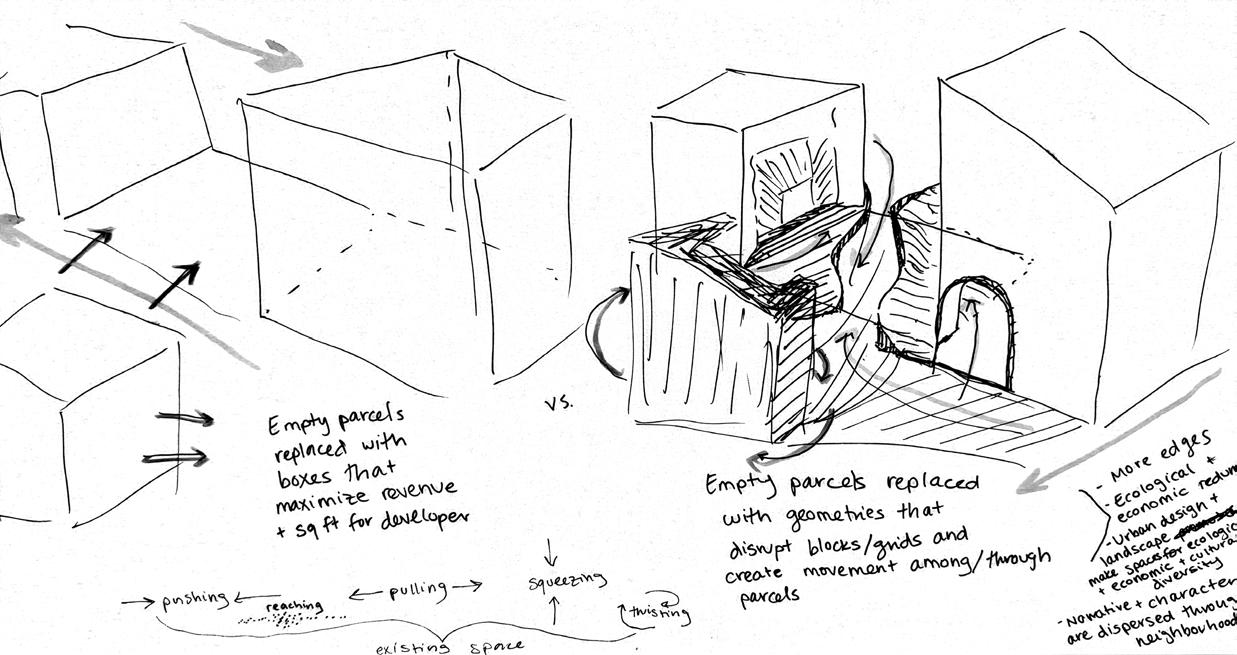 Empty parcels
replaced with
boxes that
maximize revenue
+ sq ft for developer
vs.
Empty parcels replaced
with geometries that
disrupt blocks/grids and
create movement among/through
parcels
- More edges
- Ecological +
economic
- Urban design +
landscape
make spaces for
+ economic +
diversity
- Narrative + character
are dispersed
neighbourhood
pushing
reaching
pulling
squeezing
twisting
existing space